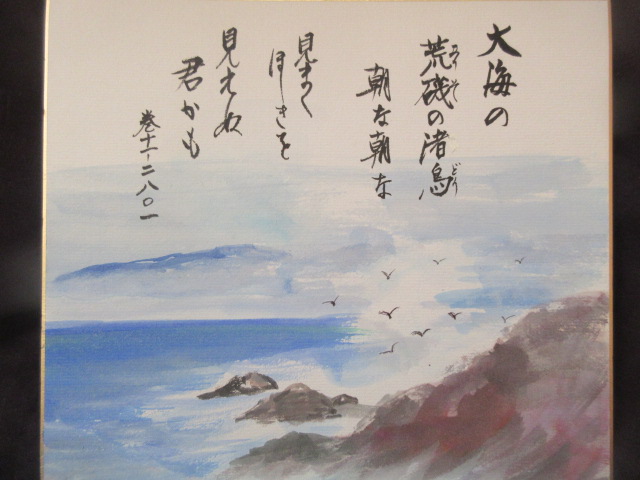 大海の
荒磯の渚鳥
朝な朝な
見まく
ほしきを
見えぬ
君かも
巻十一-二八〇一